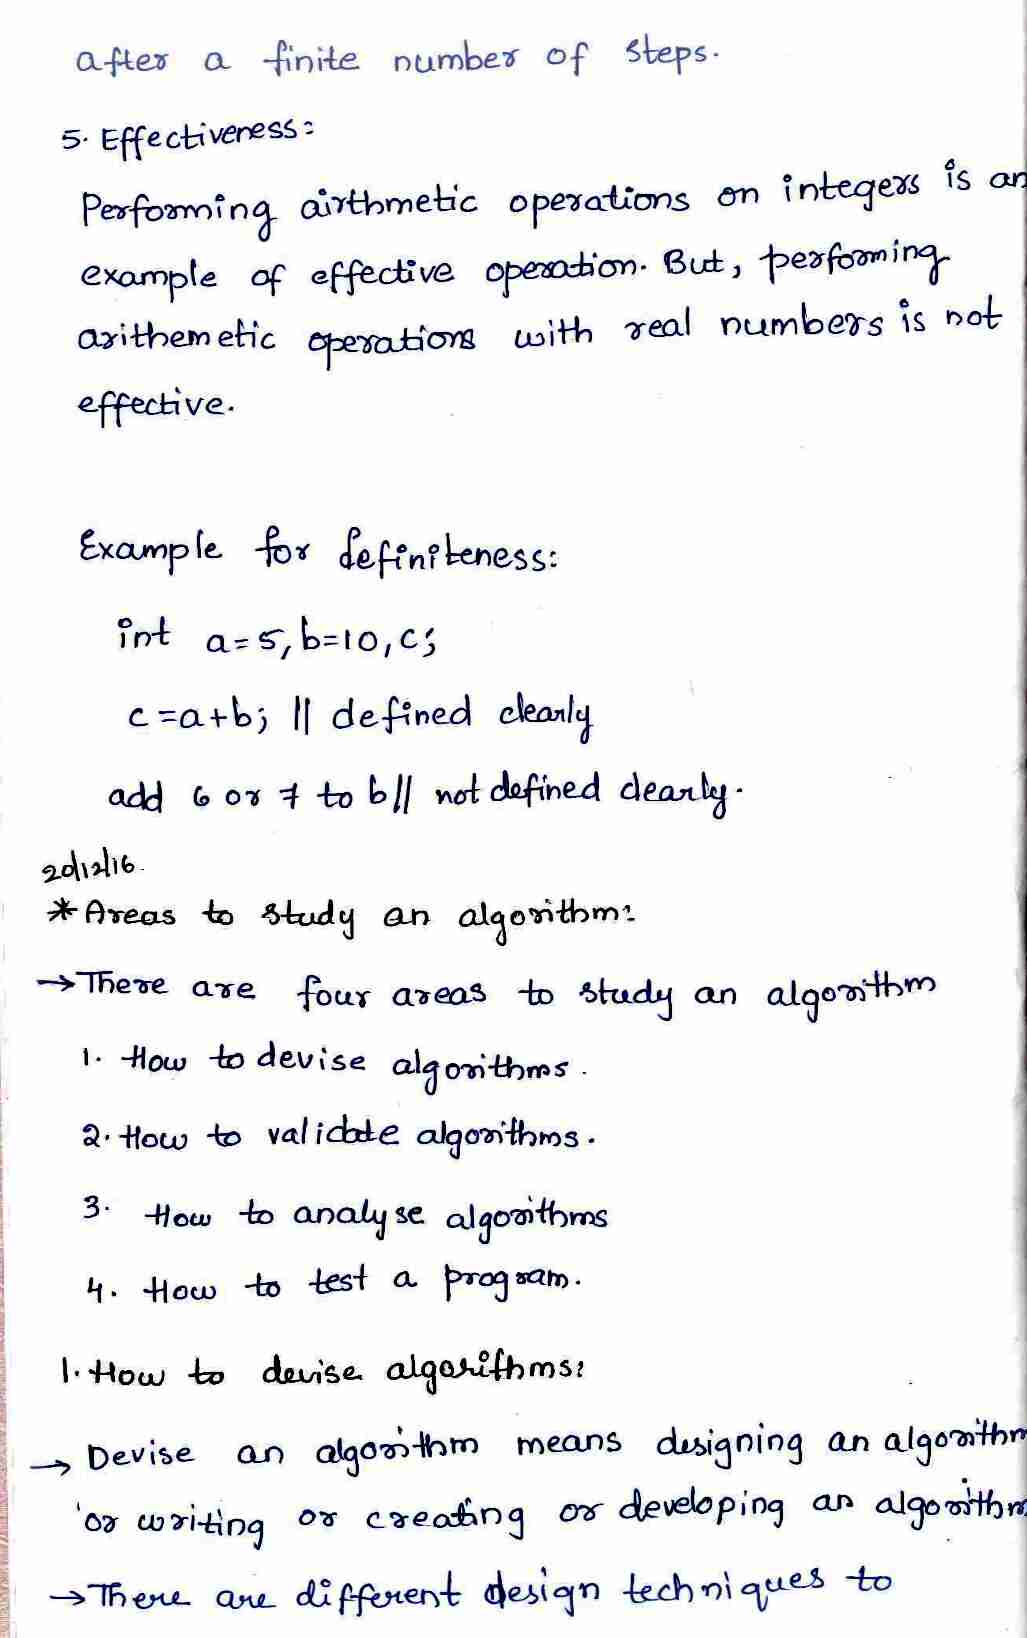 after a finite number of steps.
5. Effectiveness:
Performing airthmetic operations on integers is an
example of effective operation. But, performing
arithemetic operations with real numbers is not
effective.
Example for definiteness:
int a=5, b=10, c;
c=a+b; // defined clearly
add 6 or 7 to b// not defined clearly.
20/12/16.
* Areas to study an algorithm:
→ There are four areas to study an algorithm
1. How to devise algorithms.
2. How to validate algorithms.
3. How to analyse algorithms
4. How to test a program.
1. How to devise algorithms:
→ Devise an algorithm means designing an algorithm
or writing or creating or developing an algorithm.
→ There are different design techniques to